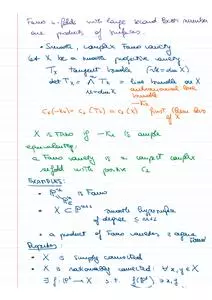 Fano 4-folds with large second Betti number
are products of surfaces.
• Smooth, complex Fano variety
Let X be a smooth projective variety
T_X tangent bundle (rk = dim X)
det T_X = Λ^n T_X = line bundle on X
n = dim X anticanonical line bundle
-K_X
c_1(-K_X) = c_1(T_X) = c_1(X) first Chern class of X
X is Fano if -K_X is ample
equivalently:
a Fano variety is a compact complex
manifold with positive c_1
EXAMPLES:
• ℙ^n is Fano
• X ⊂ ℙ^{n+1} smooth hypersurface
of degree ≤ n+1
• a product of Fano varieties is again Fano
Properties:
• X is simply connected
• X is rationally connected: ∀ x, y ∈ X
∃ f: ℙ^1 → X s.t. f(ℙ^1) ∋ x, y